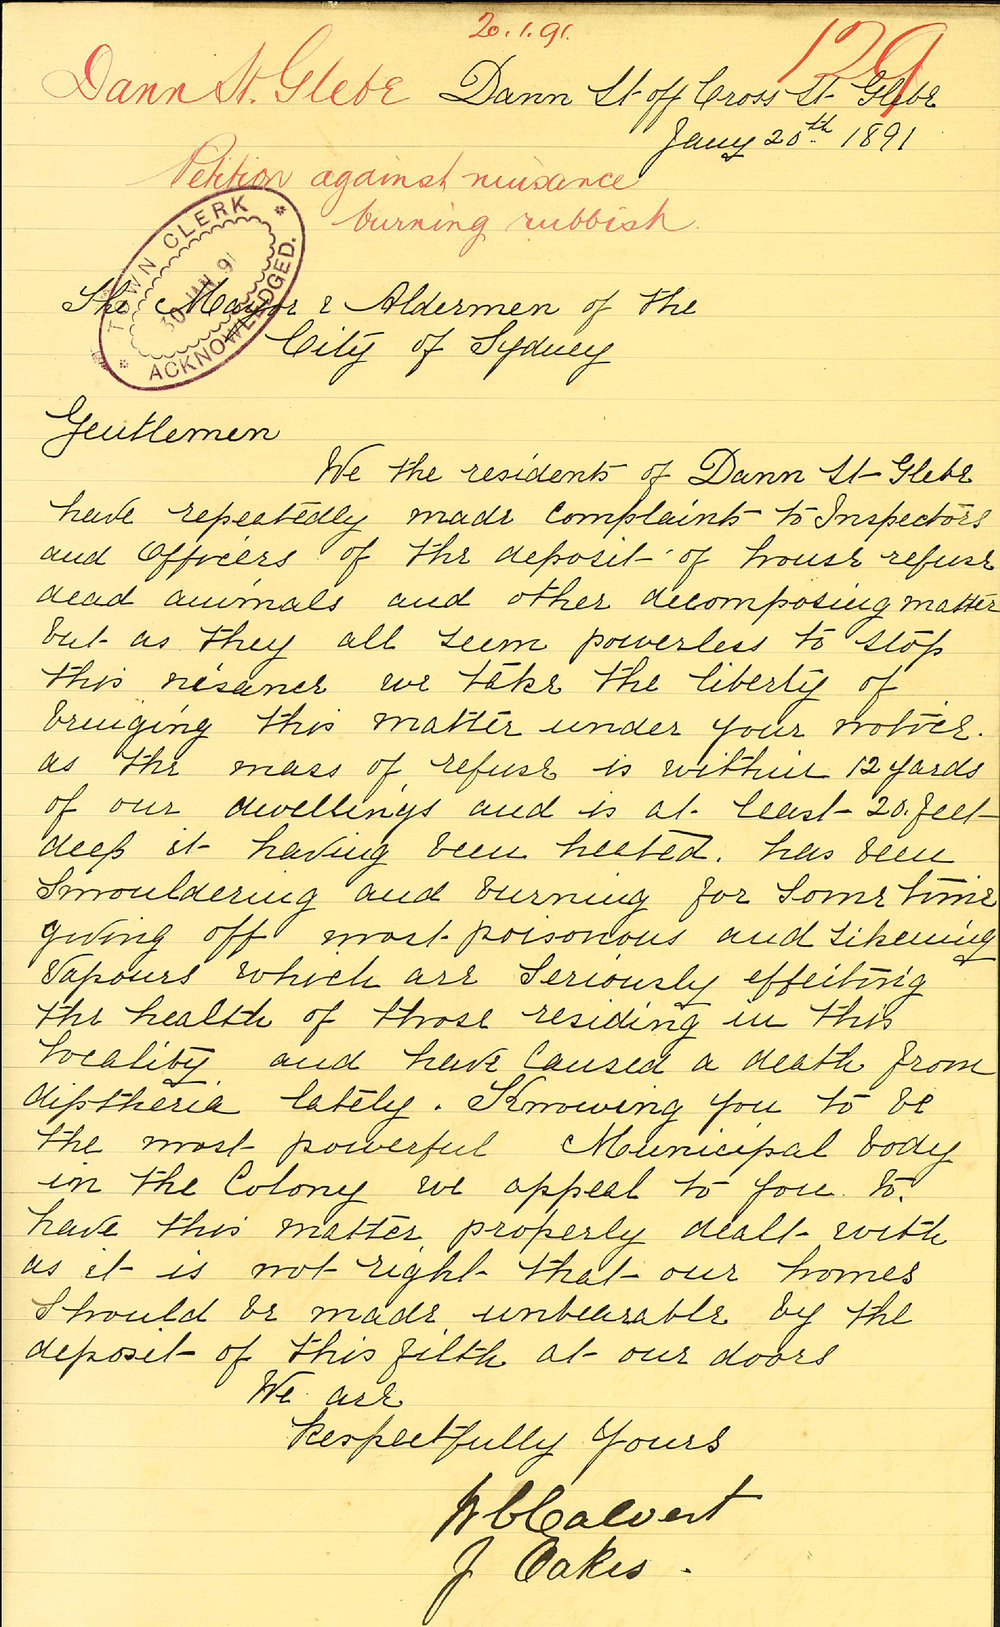 20.1.91.
129
Dann St. Glebe
Dann St off Cross St Glebe
Jany 20th 1891
Petition against nuisance
burning rubbish.
TOWN CLERK
30 JAN 91
ACKNOWLEDGED.
The Mayor & Aldermen of the
City of Sydney
Gentlemen
We the residents of Dann St Glebe
have repeatedly made complaints to Inspectors
and Officers of the deposit of house refuse
dead animals and other decomposing matter
but as they all seem powerless to stop
this nisance we take the liberty of
bringing this matter under your notice.
as the mass of refuse is within 12 yards
of our dwellings and is at least 20 feet
deep it having been heeted. has been
Smouldering and burning for some time
giving off most poisonous and sikening
Vapours which are seriously effecting
the health of those residing in this
locality and have caused a death from
diptheria lately. Knowing you to be
the most powerful Municipal body
in the Colony we appeal to you to
have this matter properly dealt with
as it is not right that our homes
should be made unbearable by the
deposit of this filth at our doors
We are
Respectfully Yours
W C Calvert
J Oakes.